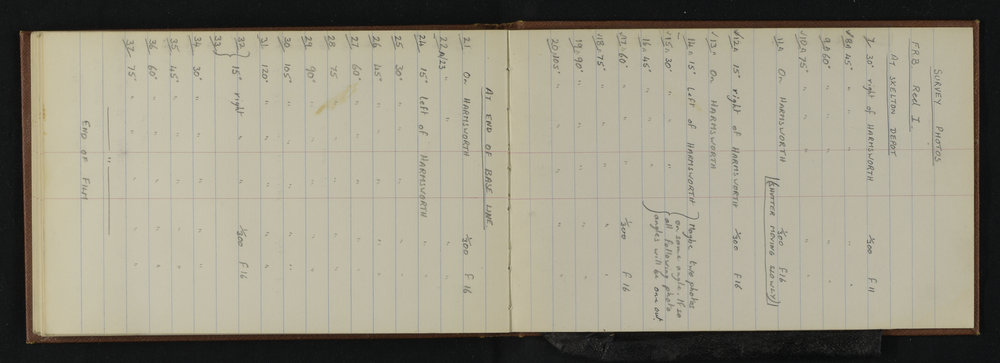 SURVEY PHOTOS
F.R.B. Reel I.
AT SKELTON DEPOT
7 30° right of HARMSWORTH 1/300 F 11
√8A 45° " " " "
9A 60° " " " "
√10A 75° " " " "
11A On HARMSWORTH 1/300 F16
(SHUTTER MOVING SLOWLY)
√12A 15° right of HARMSWORTH 1/300 F16
√13A On HARMSWORTH
14A 15° Left of HARMSWORTH } Maybe two photos
√15A 30° " " } on same angle. If so
16A 45° " " } all following photo
angles will be one out.
√17A 60° " " 1/300 F 16
√18A 75° " " " "
19A 90° " " " "
20A 105° " " " "
AT END OF BASE LINE.
21 On HARMSWORTH 1/300 F 16
22 A/23 " " " "
24 15° Left of HARMSWORTH " "
25 30° " " " "
26 45° " " " "
27 60° " " " "
28 75 " " " "
29 90° " " " "
30 105° " " " "
31 120° " " " "
32 } 15° right " " 1/300 F16
33 }
34 30° " " " "
35 45° " " " "
36 60° " " " "
37 75° " " " "
"
END OF FILM